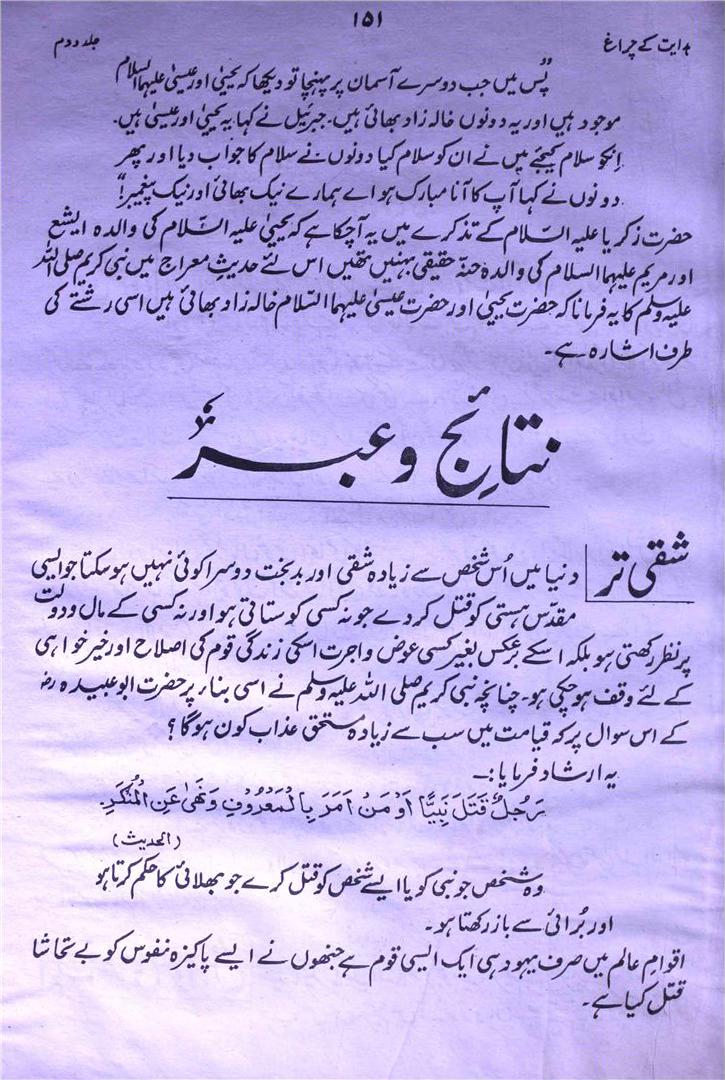 ۱۵۱
ہدایت کے چراغ
جلد دوم
”پس میں جب دوسرے آسمان پر پہنچا تو دیکھا کہ یحییٰ اور عیسیٰ علیہما السلام
موجود ہیں اور یہ دونوں خالہ زاد بھائی ہیں۔ جبرئیل نے کہا یہ یحییٰ اور عیسیٰ ہیں۔
اِنکو سلام کیجئے میں نے ان کو سلام کیا دونوں نے سلام کا جواب دیا اور پھر
دونوں نے کہا آپ کا آنا مبارک ہو اے ہمارے نیک بھائی اور نیک پیغمبر!“
حضرت زکریا علیہ السّلام کے تذکرے میں یہ آچکا ہے کہ یحییٰ علیہ السّلام کی والدہ ایشع
اور مریم علیہما السلام کی والدہ حنّہ حقیقی بہنیں تھیں اس لئے حدیثِ معراج میں نبی کریم صلی اللہ
علیہ وسلم کا یہ فرمانا کہ حضرت یحییٰ اور حضرت عیسیٰ علیہما السّلام خالہ زاد بھائی ہیں اسی رشتے کی
طرف اشارہ ہے۔
نتائج و عبر
شقی تر
دنیا میں اُس شخص سے زیادہ شقی اور بدبخت دوسرا کوئی نہیں ہوسکتا جو ایسی
مقدّس ہستی کو قتل کر دے جو نہ کسی کو ستاتی ہو اور نہ کسی کے مال و دولت
پر نظر رکھتی ہو بلکہ اسکے برعکس بغیر کسی عوض و اجرت اسکی زندگی قوم کی اصلاح اور خیر خواہی
کے لئے وقف ہو چکی ہو۔ چنانچہ نبی کریم صلی اللہ علیہ وسلم نے اسی بناء پر حضرت ابوعبیدہ رضؓ
کے اس سوال پر کہ قیامت میں سب سے زیادہ مستحق عذاب کون ہوگا؟
یہ ارشاد فرمایا:۔
رَجُلٌ قَتَلَ نَبِیًّا اَوْ مَنْ اَمَرَ بِالْمَعْرُوْفِ وَنَھٰی عَنِ الْمُنْکَرِ۔
(الحدیث)
وہ شخص جو نبی کو یا ایسے شخص کو قتل کرے جو بھلائی کا حکم کرتا ہو
اور بُرائی سے باز رکھتا ہو۔
اقوامِ عالم میں صرف یہود ہی ایک ایسی قوم ہے جنھوں نے ایسے پاکیزہ نفوس کو بے تحاشا
قتل کیا ہے۔